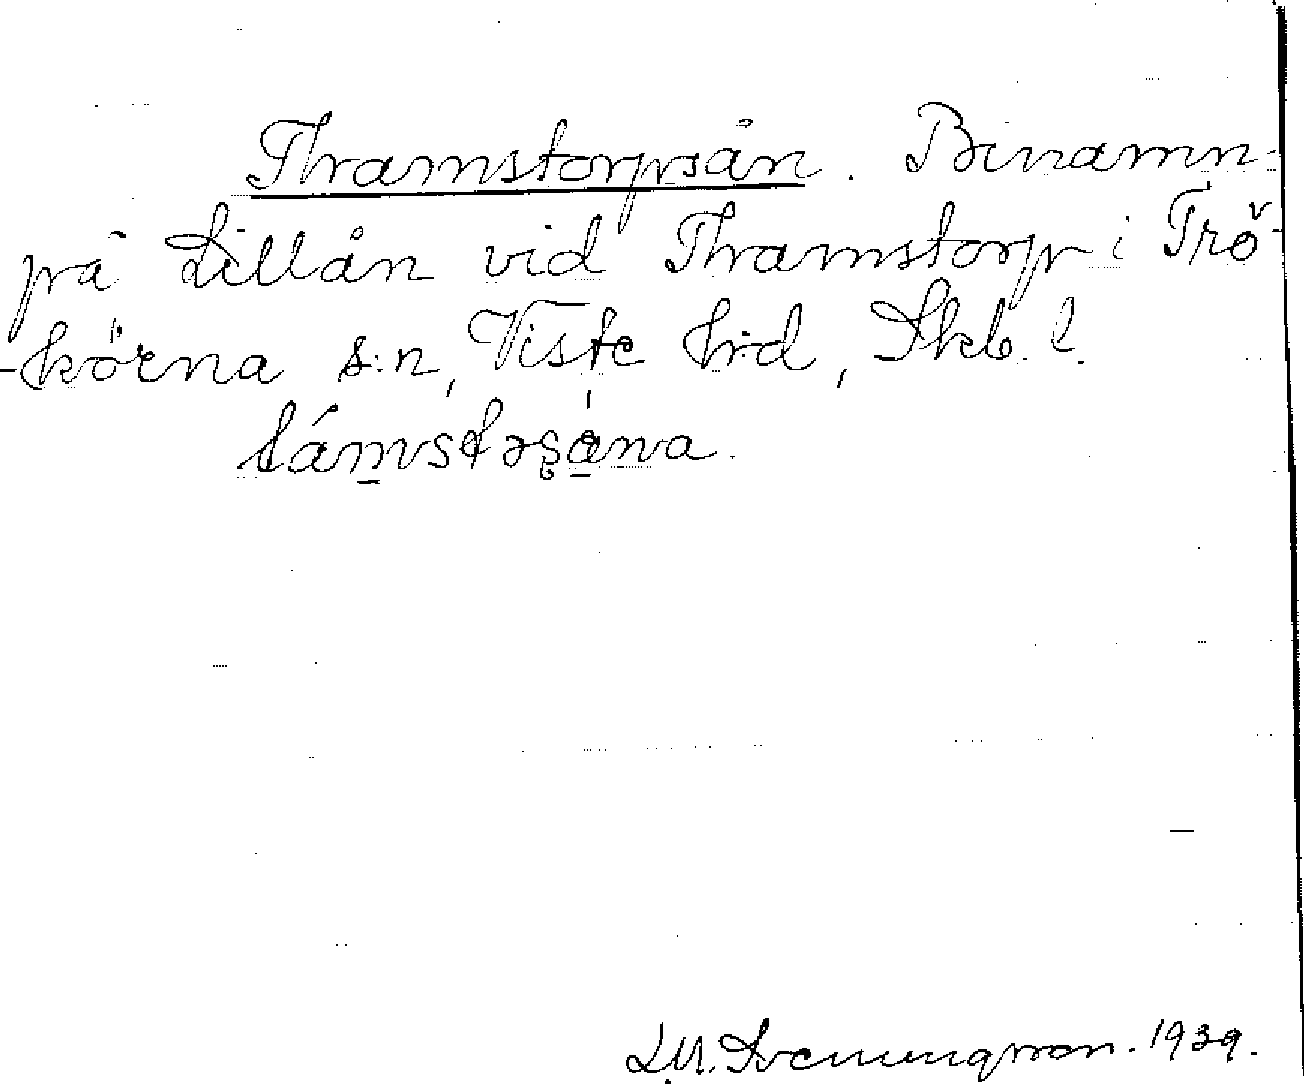 Thramstorpsån. Binamn
på Lillån vid Thramstorp i Trö-
-körna s:n, Viste hrd, Skb. l.
támstəṣåna.
L.M. Svenungsson. 1939.